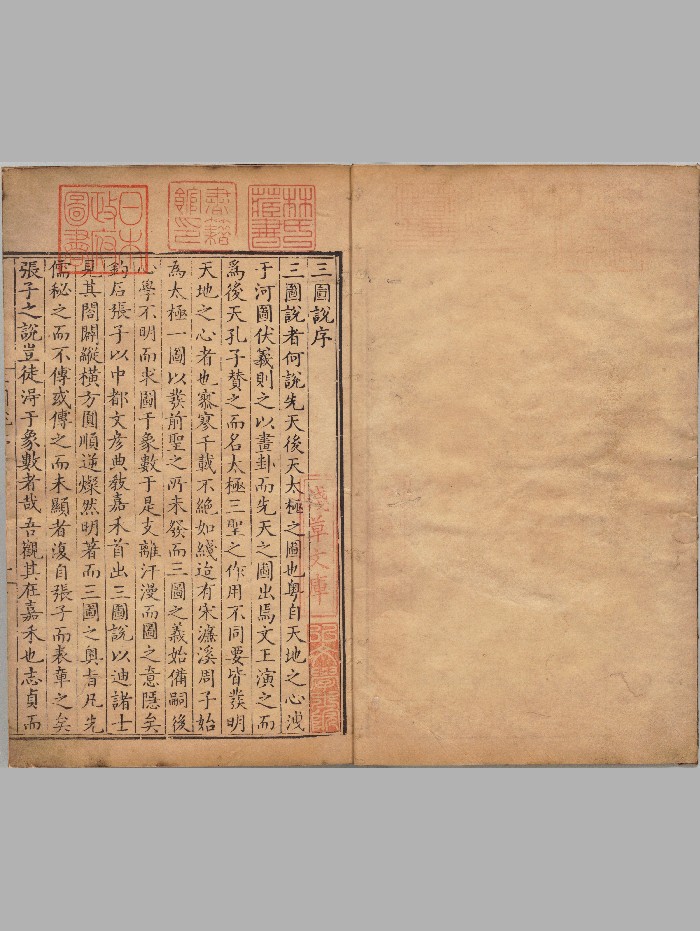 三圖說序
三圖說者何說先天後天太極之圖也粵自天地之心洩
于河圖伏羲則之以畫卦而先天之圖出焉文王演之而
爲後天孔子贊之而名太極三聖之作用不同要皆發明
天地之心者也寥寥千載不絕如綫迨有宋濂溪周子始
爲太極一圖以發前聖之所未發而三圖之義始備嗣後
心學不明而求圖于象數于是支離汗漫而圖之意隱矣
鈞石張子以中都文彥典敎嘉禾首出三圖說以迪諸士
見其闔闢縱橫方圓順逆燦然明著而三圖之奧旨凡先
儒秘之而不傳或傳之而未顯者復自張子而表章之矣
張子之說豈徒淂于象數者哉吾觀其在嘉禾也志貞而
林氏藏書
書籍館印
日本政府圖書
淺草文庫
弘文學士院